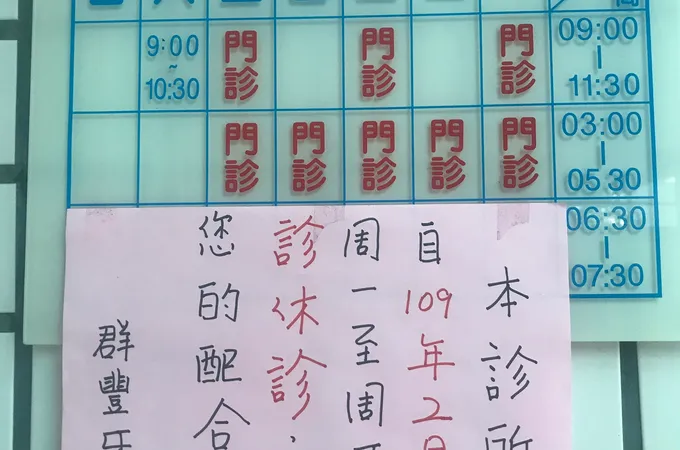 9:00
~
10:30
門診
門診
門診
09:00
|
11:30
門診
門診
門診
門診
門診
03:00
|
05:30
06:30
|
07:30
本診所
自109年2月
周一至周
診休診，
您的配合
群豐牙